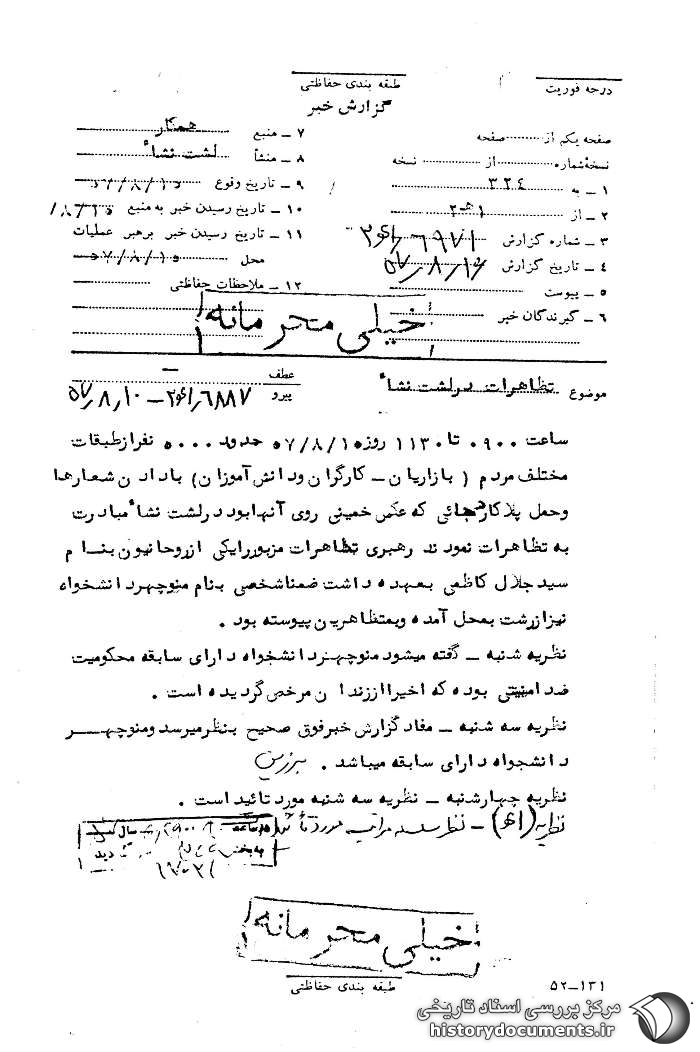 درجه فوریت
طبقه بندی حفاظتی
گزارش خبر
صفحه یکم از صفحه
نسخهٔ شماره از نسخه
۱ ــ به ۳۲۴
۲ ــ از ۱هـ۲
۳ ــ شماره گزارش
۴ ــ تاریخ گزارش ۵۷/۸/۱۶
۵ ــ پیوست
۶ ــ گیرندگان خبر
۷ ــ منبع همکار
۸ ــ منشأ لشت نشاء
۹ ــ تاریخ وقوع ۵۷/۸/۱۵
۱۰ ــ تاریخ رسیدن خبر به منبع ۸/۱۵/
۱۱ ــ تاریخ رسیدن خبر برهبر عملیات
محل ۵۷/۸/۱۵
۱۲ ــ ملاحظات حفاظتی
خیلی محرمانه
موضوع تظاهرات در لشت نشاء
عطف ــ
پیرو ۵۷/۸/۱۰
ساعت ۰۹۰۰ تا ۱۱۳۰ روز ۵۷/۸/۱۵ حدود ۵۰۰۰ نفر از طبقات
مختلف مردم ( بازاریان ــ کارگران و دانش آموزان ) با دادن شعارها
و حمل پلاکاردهائی که عکس خمینی روی آنها بود در لشت نشاء مبادرت
به تظاهرات نمودند رهبری تظاهرات مزبور را یکی از روحانیون بنام
سید جلال کاظمی بعهده داشت ضمناً شخصی بنام منوچهر دانشخواه
نیز از رشت بمحل آمده و بمتظاهرین پیوسته بود .
نظریه شنبه ــ گفته میشود منوچهر دانشخواه دارای سابقه محکومیت
ضد امنیتی بوده که اخیرا از زندان مرخص گردیده است .
نظریه سه شنبه ــ مفاد گزارش خبر فوق صحیح بنظر میرسد و منوچهر
دانشجواه دارای سابقه میباشد .
نظریه چهارشنبه ــ نظریه سه شنبه مورد تائید است .
نظریه ــ نظر سلسله مراتب مورد تأ
خیلی محرمانه
طبقه بندی حفاظتی
۵۲ــ۱۳۱
مرکز بررسی اسناد تاریخی
historydocuments.ir